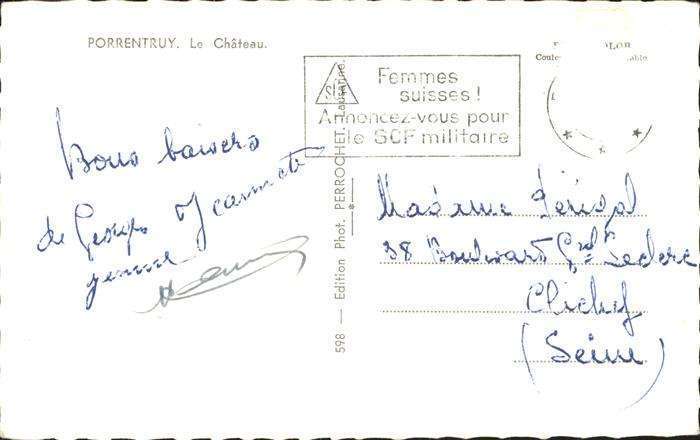 PORRENTRUY. Le Château.
Femmes
suisses!
Annoncez-vous pour
le SCF militaire
Bons baisers
de Georges Jeannette
598 — Edition Phot. PERROCHET, Lausanne.
Madame
38 Boulevard Gral Leclerc
Clichy
(Seine)